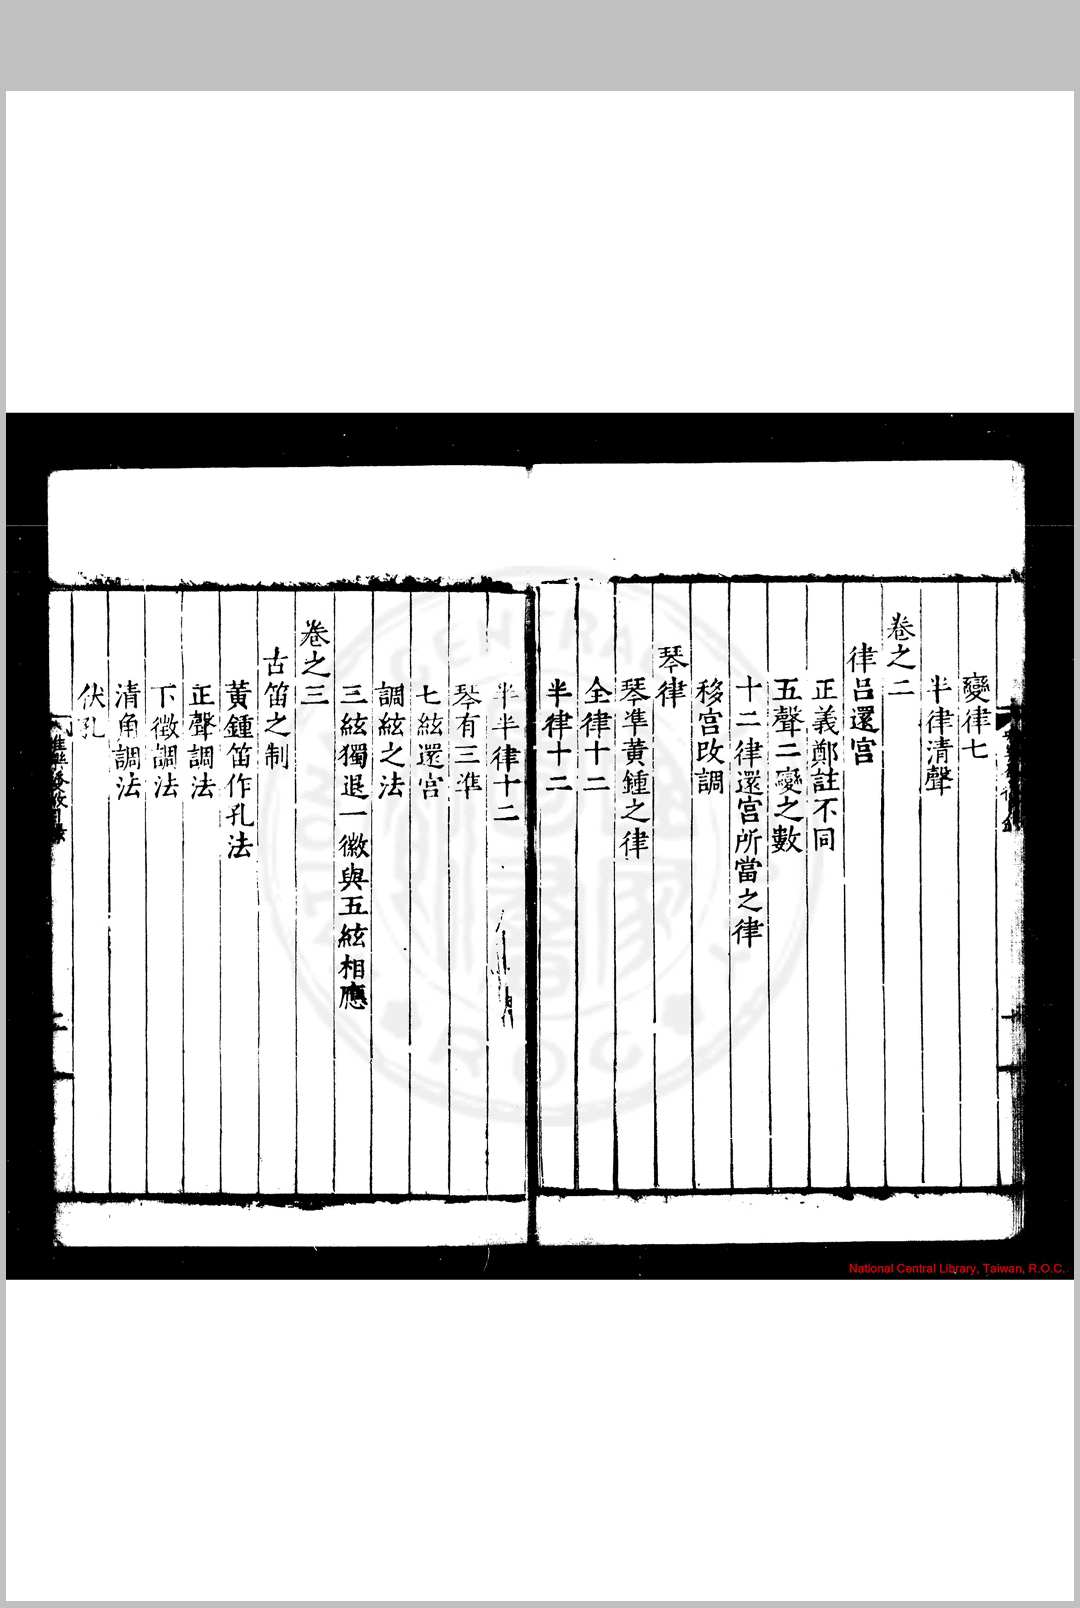 變律七
半律清聲
卷之二
律呂還宮
正義鄭註不同
五聲二變之數
十二律還宮所當之律
移宮改調
琴律
琴準黃鍾之律
全律十二
半律十二
半半律十二
琴有三準
七絃還宮
調絃之法
三絃獨退一徽與五絃相應
卷之三
古笛之制
黃鍾笛作孔法
正聲調法
下徵調法
清角調法
伏孔
National Central Library, Taiwan, R.O.C.